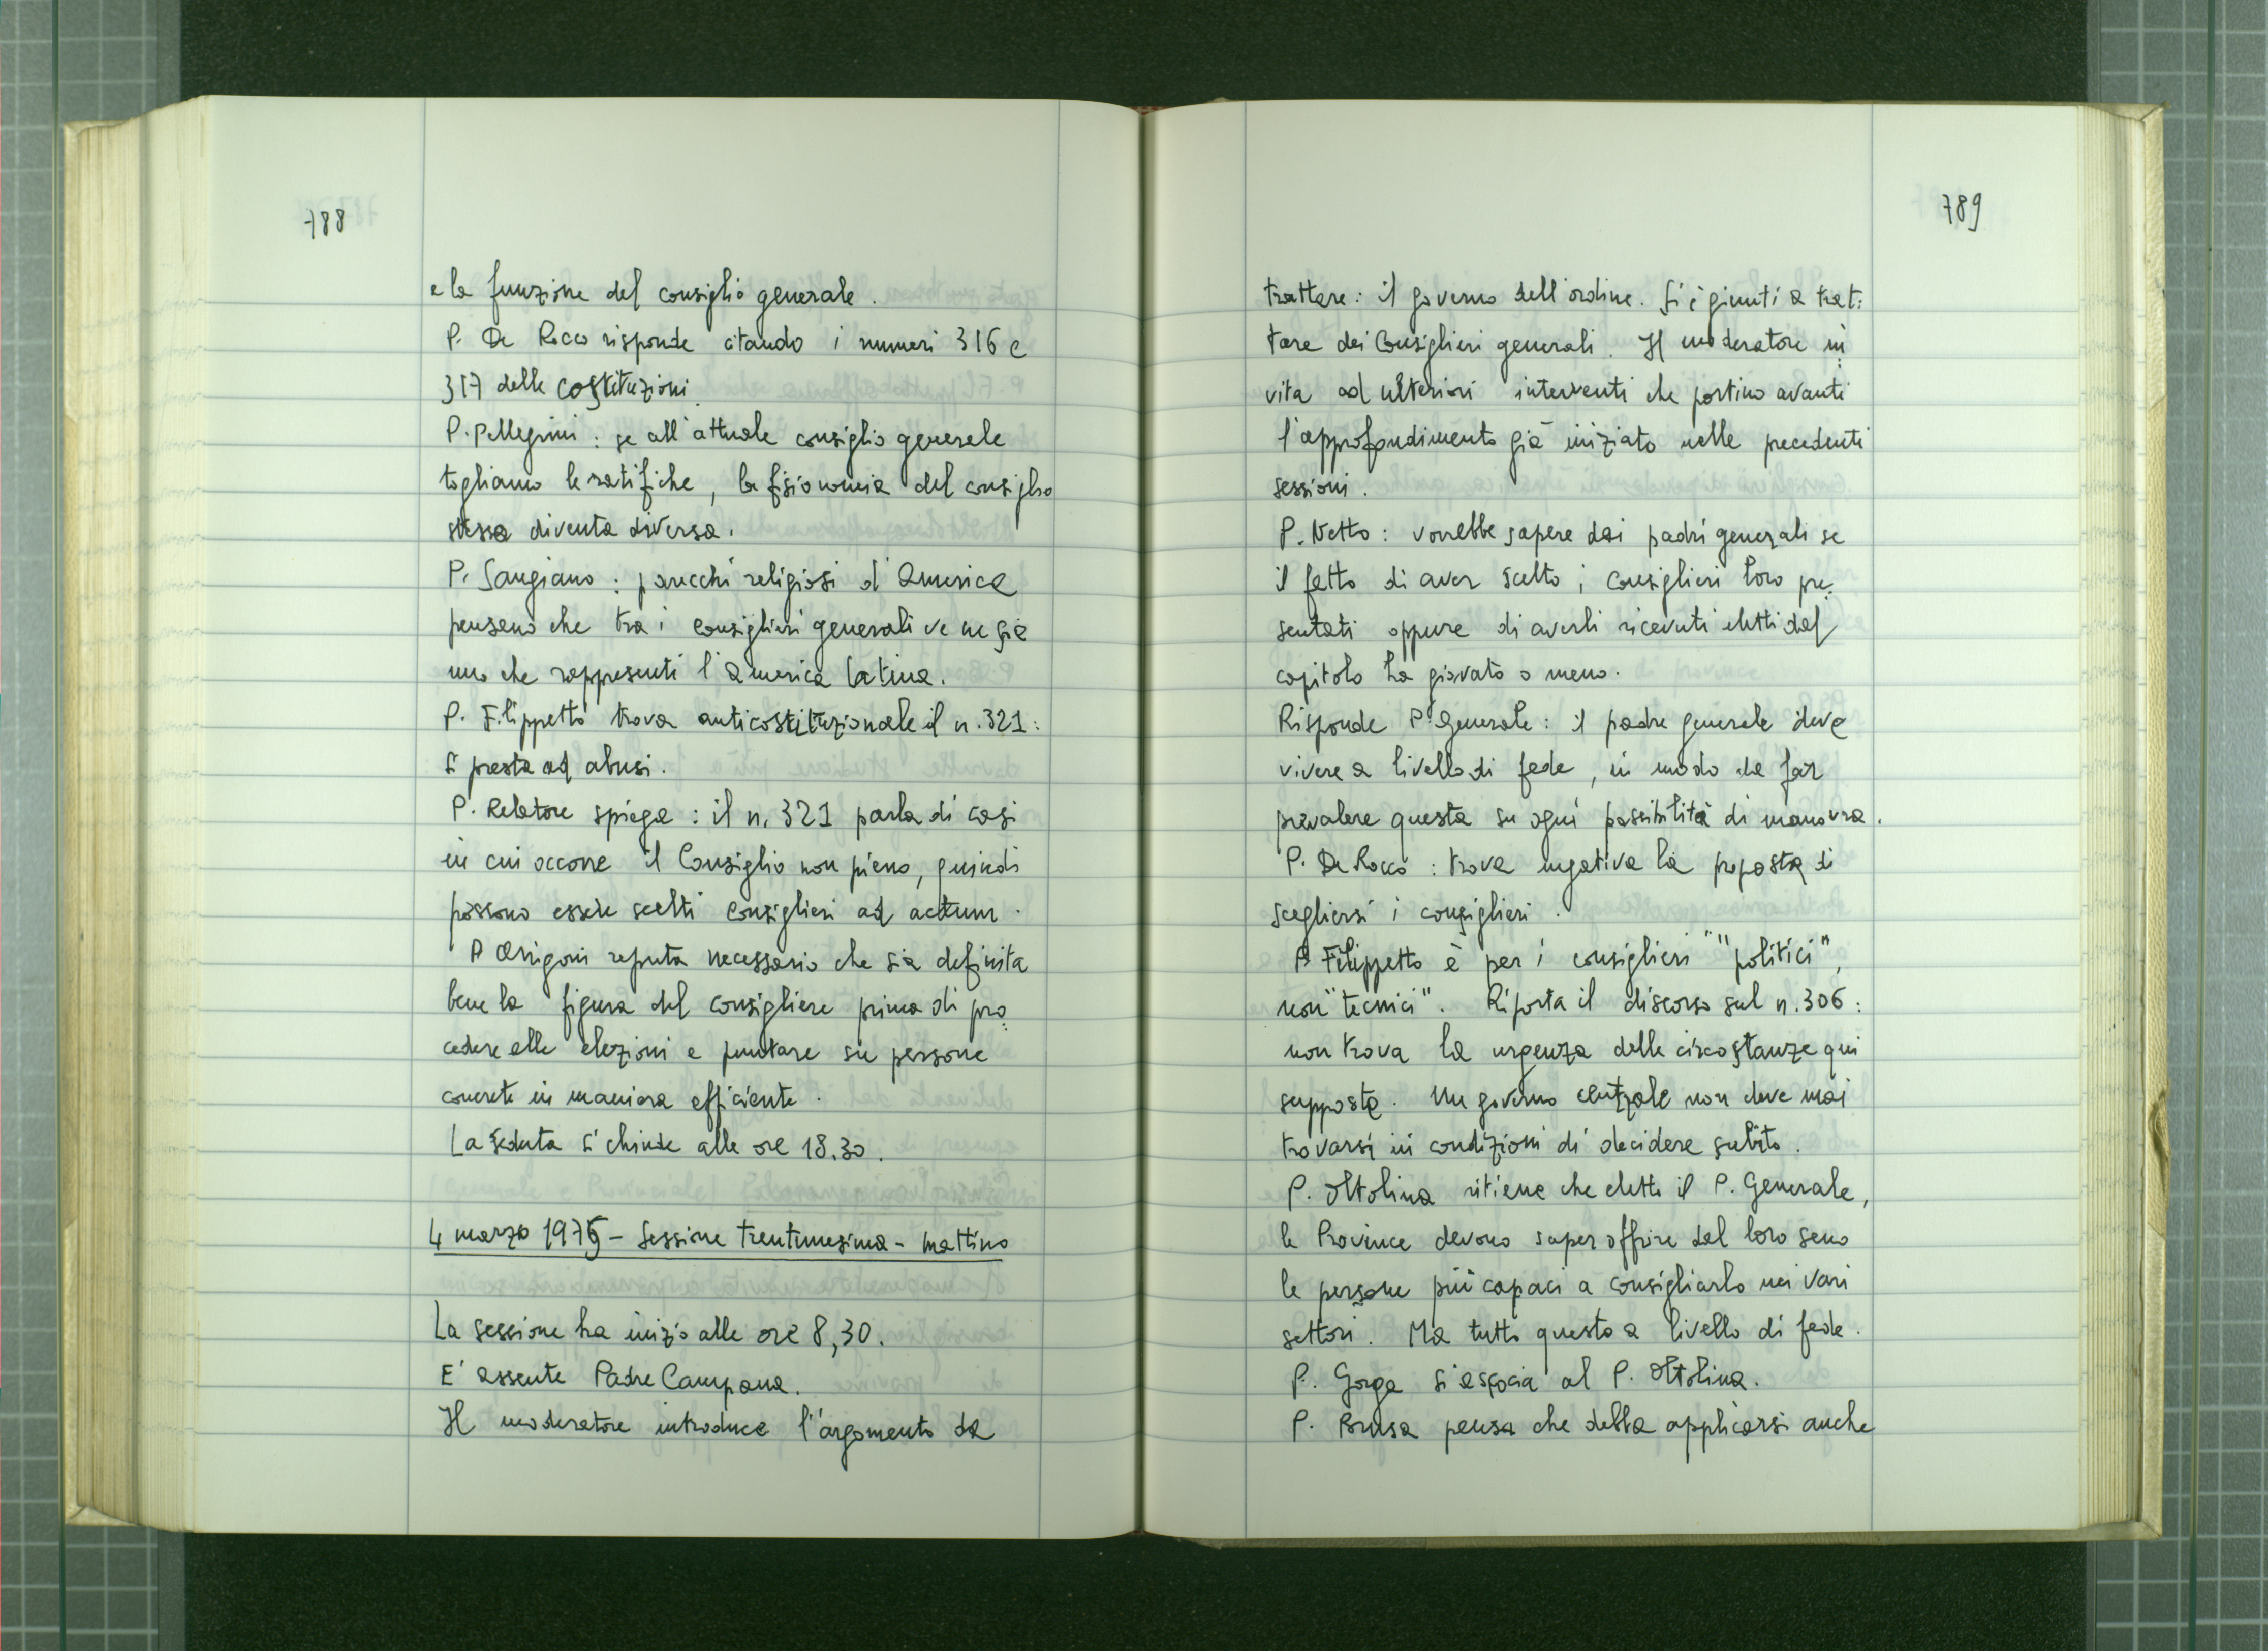 788
e la funzione del consiglio generale.
P. De Rocco risponde citando i numeri 316 e
317 delle costituzioni.
P. Pellegrini : se all'attuale consiglio generale
togliamo le ratifiche, la fisionomia del consiglio
stessa diventa diversa.
P. Sangiano : parecchi religiosi d'America
pensano che tra i consiglieri generali ve ne sia
uno che rappresenti l'America latina.
P. Filippetto trova anticostituzionale il n. 321:
si presta ad abusi.
P. Relatore spiega : il n. 321 parla di casi
in cui occorre il Consiglio non pieno, quindi
possono essere scelti consiglieri ad actum.
P Arrigoni reputa necessario che sia definita
bene la figura del consigliere prima di pro
cedere alle elezioni e puntare su persone
concrete in maniera efficiente.
La seduta si chiude alle ore 18.30.
4 marzo 1975 - Sessione trentunesima - mattino
La sessione ha inizio alle ore 8,30.
E' assente Padre Campana.
Il moderatore introduce l'argomento da
789
trattare : il governo dell'ordine. Si è giunti a trat:
tare dei Consiglieri generali. Il moderatore in
vita ad ulteriori interventi che portino avanti
l'approfondimento già iniziato nelle precedenti
sessioni.
P. Netto : vorrebbe sapere dai padri generali se
il fatto di aver scelto i consiglieri loro pre:
sentati oppure di averli ricevuti eletti dal
capitolo ha giovato o meno.
Risponde P. Generale : il padre generale deve
vivere a livello di fede, in modo da far
prevalere questa su ogni possibilità di manovra.
P. De Rocco : trova negativa la proposta di
scegliersi i consiglieri.
P. Filippetto è per i consiglieri "politici",
non "tecnici". Riporta il discorso sul n. 306 :
non trova la urgenza delle circostanze qui
supposta. Un governo centrale non deve mai
trovarsi in condizioni di decidere subito.
P. Oltolina ritiene che eletto il P. Generale,
le Province devono saper offrire dal loro seno
le persone più capaci a consigliarlo nei vari
settori. Ma tutto questo a livello di fede.
P. Gorga si associa al P. Oltolina.
P. Brusa pensa che debba applicarsi anche